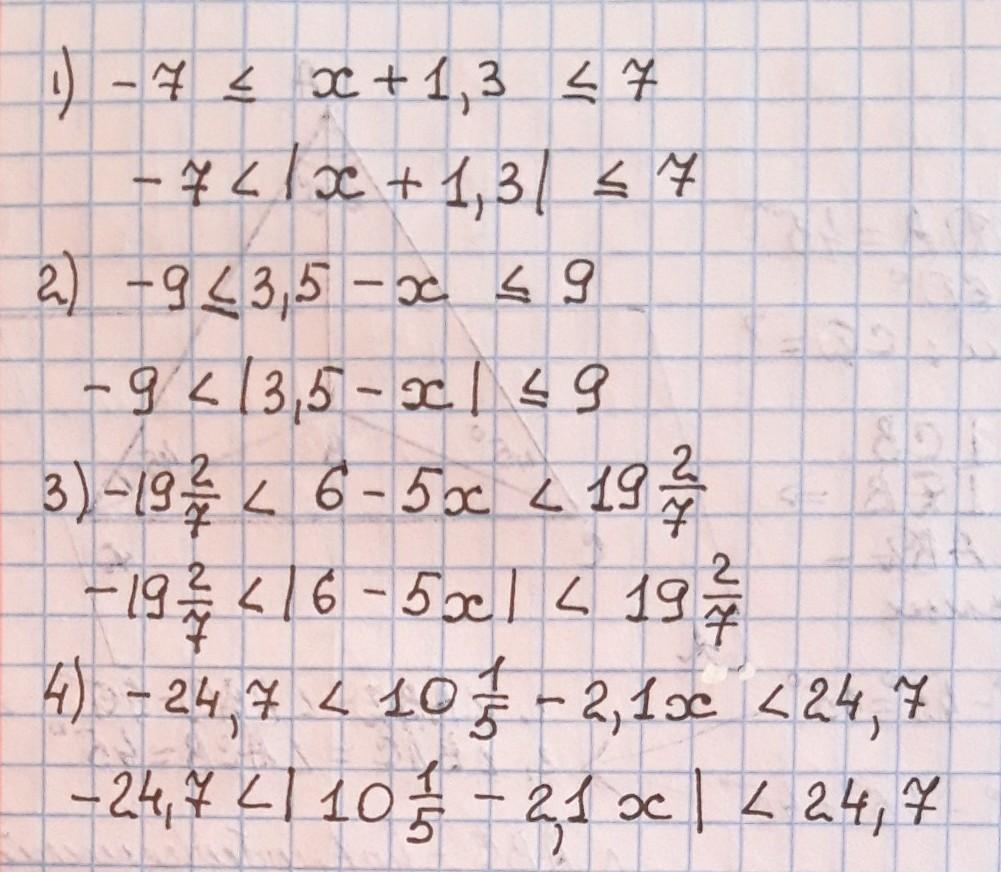 1) -7 ≤ x + 1,3 ≤ 7
-7 < |x + 1,3| ≤ 7
2) -9 ≤ 3,5 - x ≤ 9
-9 < |3,5 - x| ≤ 9
3) -19 2/7 < 6 - 5x < 19 2/7
-19 2/7 < |6 - 5x| < 19 2/7
4) -24,7 < 10 1/5 - 2,1x < 24,7
-24,7 < |10 1/5 - 2,1x| < 24,7